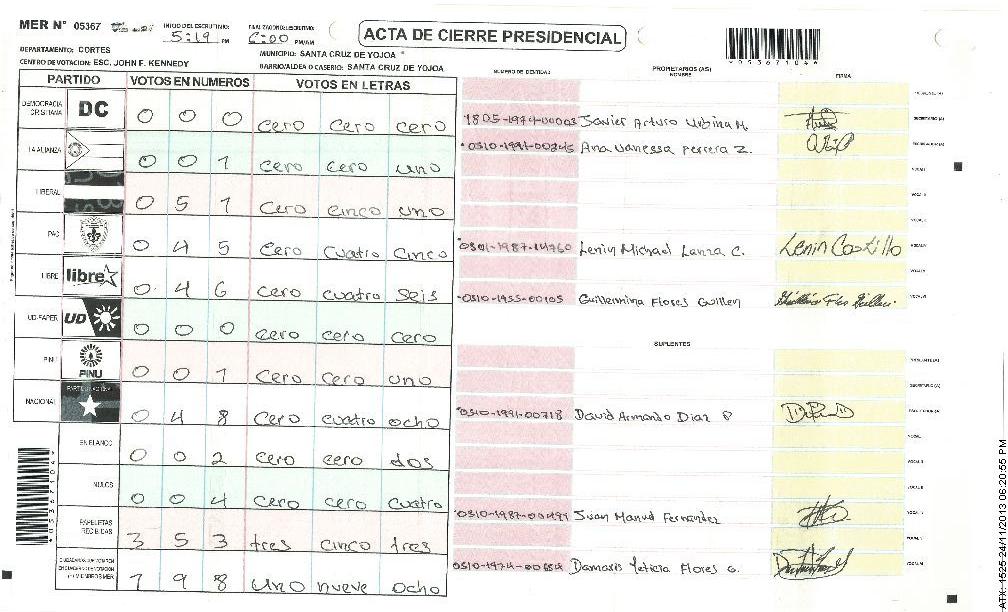 MER N° 05367
INICIO DEL ESCRUTINIO: 5:19 PM
FINALIZACION DEL ESCRUTINIO: 6:00 PM/AM
ACTA DE CIERRE PRESIDENCIAL
DEPARTAMENTO: CORTES
MUNICIPIO: SANTA CRUZ DE YOJOA
CENTRO DE VOTACION: ESC. JOHN F. KENNEDY
BARRIO/ALDEA O CASERIO: SANTA CRUZ DE YOJOA
PARTIDO VOTOS EN NUMEROS VOTOS EN LETRAS
DEMOCRACIA CRISTIANA DC 0 0 0 cero cero cero
LA ALIANZA 0 0 1 cero cero uno
LIBERAL 0 5 1 cero cinco uno
PAC 0 4 5 cero cuatro cinco
LIBRE libre 0 4 6 cero cuatro seis
UD-FAPER UD 0 0 0 cero cero cero
PINU PINU 0 0 1 cero cero uno
NACIONAL PARTIDO NACIONAL 0 4 8 cero cuatro ocho
EN BLANCO 0 0 2 cero cero dos
NULOS 0 0 4 cero cero cuatro
PAPELETAS RECIBIDAS 3 5 3 tres cinco tres
1 9 8 uno nueve ocho
NUMERO DE IDENTIDAD
PROPIETARIOS (AS)
NOMBRE
FIRMA
1805-1974-00003 Javier Arturo Urbina M. SECRETARIO (A)
0510-1991-00245 Ana Vanessa Perrera Z.
0501-1987-14760 Lenin Michael Lanza C. Lenin Castillo
0510-1955-00105 Guillermina Flores Guillen
SUPLENTES
0510-1991-00718 David Armando Diaz P
Juan Manuel Fernandez
Damaris Leticia Flores G.
ATX-1525-24/11/2013 06:20:55 PM